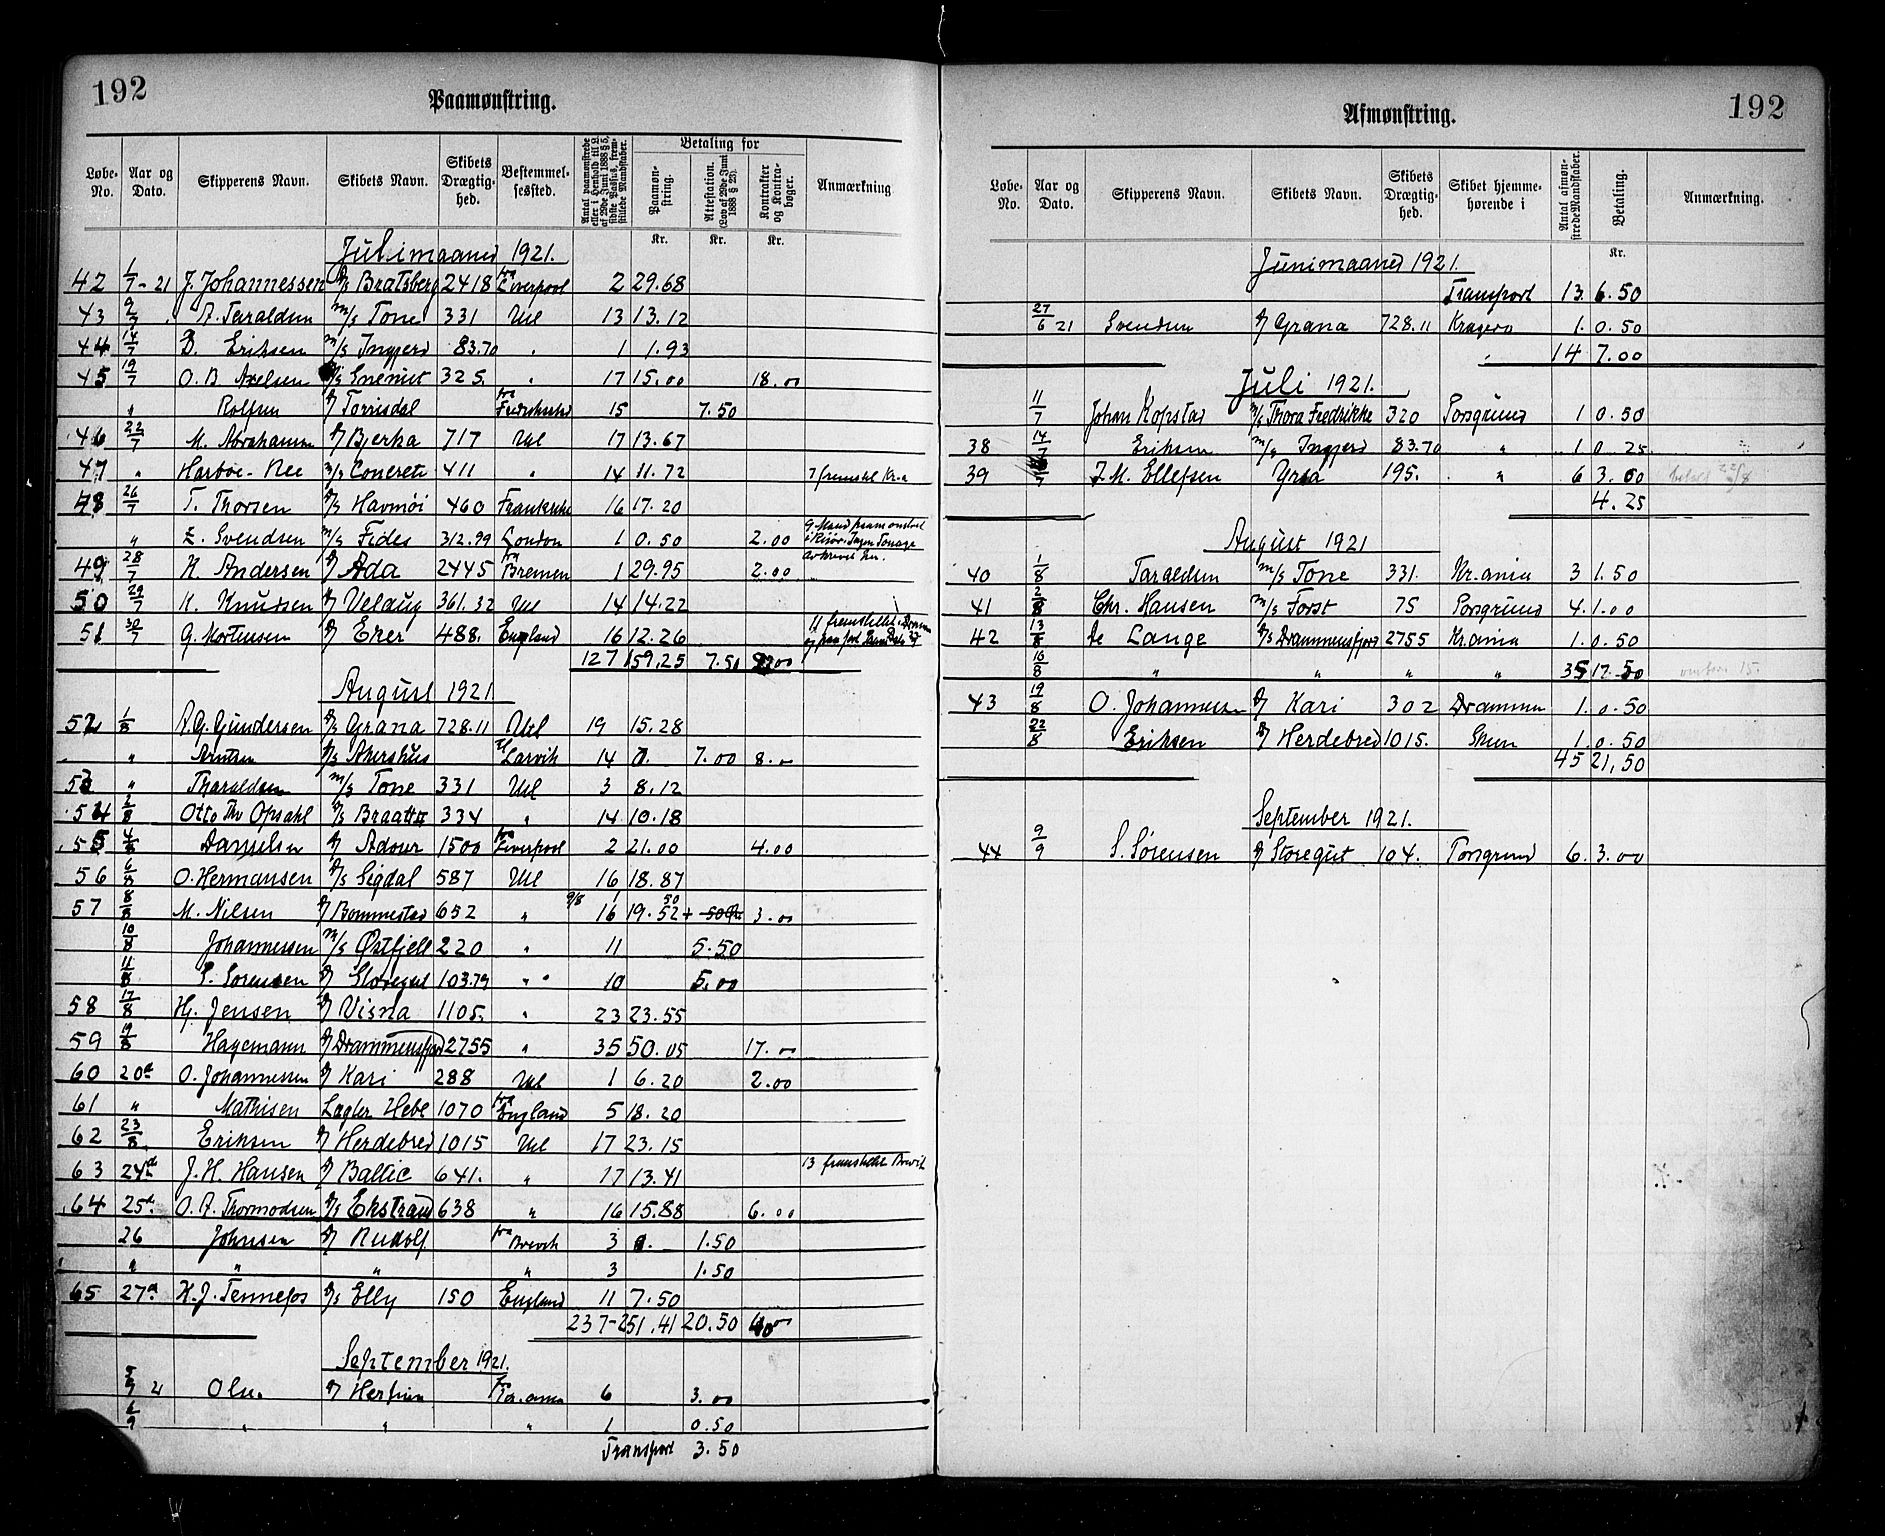 192
Paamønstring.
Løbe-No. Aar og Dato. Skipperens Navn. Skibets Navn. Skibets Drægtighed. Bestemmelsessted. Antal paamønstrede eller i Henhold til L. af 29de Juni 1888 § 5, sidste Passus, fremstillede Mandskaber. Betaling for Paamønstring. Attestation. (Lov af 29de Juni 1888 § 23). Kontrakter og Kontrabøger. Anmærkning
Kr. Kr. Kr.
Julimaaned 1921.
42 1/7-21 J. Johannessen D/S Bratsberg 2418 fra Liverpool 2 29.68
43 9/7 A. Taraldsen M/S Tone 331 Utl 13 13.12
44 14/7 B. Eriksen M/S Ingjerd 83.70 " 1 1.93
45 19/7 O. B. Axelsen 325. " 17 15.00 18.00
" Rolfsen D/ Torrisdal fra Fredrikstad 15 7.50
46 22/7 M. Abrahamsen D/ Bjerka 717 Utl 17 13.67
47 " Harboe-Ree M/S Concrete 411 " 14 11.72 7 fremstil Kr.a
48 26/7 T. Thorsen D/S Havmøi 460 Frankrike 16 17.20
" E. Svendsen M/S Fides 312.99 London 1 0.50 2.00 9 Mand paamønstret i Risør. Ingen Tonnage avkrevet her.
49 28/7 K. Andersen D/ Ada 2445 fra Bremen 1 29.95 2.00
50 29/7 K. Knudsen D/ Velaug 361.32 Utl 14 14.22
51 30/7 G. Mortensen D/ Eker 488. England 16 12.26 11 fremstillet i Dramm
127 159,25 7.50
August 1921
52 1/8 A. G. Gundersen D/S Grana 728.11 Utl 19 15.28
" Arntsen D/S Akershus til Larvik 14 7.00 8.00
53 " Tharaldsen M/S Tone 331 Utl 3 8.12
54 2/8 Otto Thv Opsahl D/S Braatt 334 " 14 10.18
55 4/8 Danielsen D/ Adour 1500 fra Liverpool 2 21.00 4.00
56 6/8 O. Hermansen D/S Sigdal 587 Utl 16 18.87
57 8/8 M. Nilsen D/ Bommestad 652 " 9/8 1 16 19.52 + 50 3.00
10/8 Johannessen M/S Østfjell 220 " 11 5.50
11/8 S. Sørensen D/ Storegut 103.79 " " 10 5.00
58 17/8 Hj. Jensen D/ Visna 1105. " 23 23.55
59 19/8 Hagemann D/ Drammensfjord 2755 " 35 50.05 17.00
60 20de O. Johannessen D/ Kari 288 Utl 1 6.20 2.00
61 " Mathisen Lægter Hebe 1070 fra England 5 18.20
62 23/8 Eriksen D/ Herdebred 1015 Utl 17 23.15
63 24de J. H. Hansen D/ Baltic 641. " 17 13.41 13 fremstillet Brevik
64 25de O. A. Thormodsen D/S Ekstrand 638 " 16 15.88 6.00
26 Johnsen D/ Rudolf fra Brevik 3 1.50
" " " " 3 1.50
65 27de K. J. Tennefos D/S Elly 150 England 11 7.50
237 - 251.41 20.50 40.00
September 1921.
5/9 21 Olsen fra Kr.ania 6 3.00
6/9 " " " 1 0.50
Transport 3.50
192
Afmønstring.
Løbe-No. Aar og Dato. Skipperens Navn. Skibets Navn. Skibets Drægtighed. Skibet hjemmehørende i Antal afmønstrede Mandskaber. Betaling. Anmærkning.
Kr.
Junimaaned 1921.
Transport 13. 6.50
27/6 21 Svendsen D/ Grana 728.11 Kragerø 1. 0.50
14 7.00
Juli 1921.
11/7 Johan Kopstad M/S Thora Fredrikke 320 Porsgrund 1 0.50
38 14/7 Eriksen M/S Ingjerd 83.70 " 1 0 25
39 J. M. Ellefsen Yrsa 195. " 6 3.00
4.25
August 1921
40 1/8 Taraldsen M/S Tone 331. Kr.ania 3 1.50
41 2/8 Chr. Hansen M/S Forst 75 Porsgrund 4. 1.00
42 13/8 de Lange D/S Drammensfjord 2755 Kr.ania 1. 0.50
16/8 " " " " 35 17.50
43 19/8 O. Johannessen D/ Kari 302 Drammen 1. 0.50
22/8 Eriksen D/ Herdebred 1015. Skien 1. 0.50
45 21,50
September 1921.
44 9/9 S. Sørensen D/ Storegut 104. Porsgrund 6. 3.00